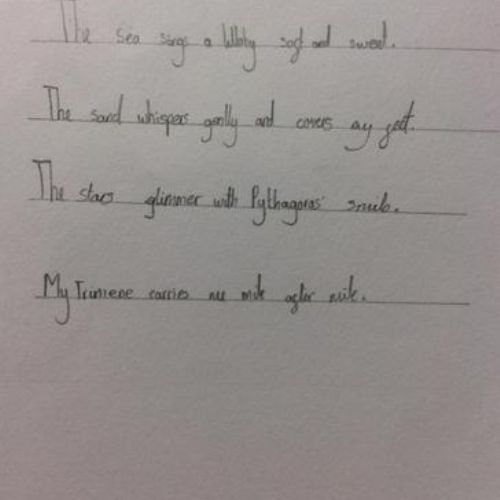 The sea sings a lullaby soft and sweet.
The sand whispers gently and covers my feet.
The stars glimmer with Pythagoras'
My Trimene carries me mile after mile.